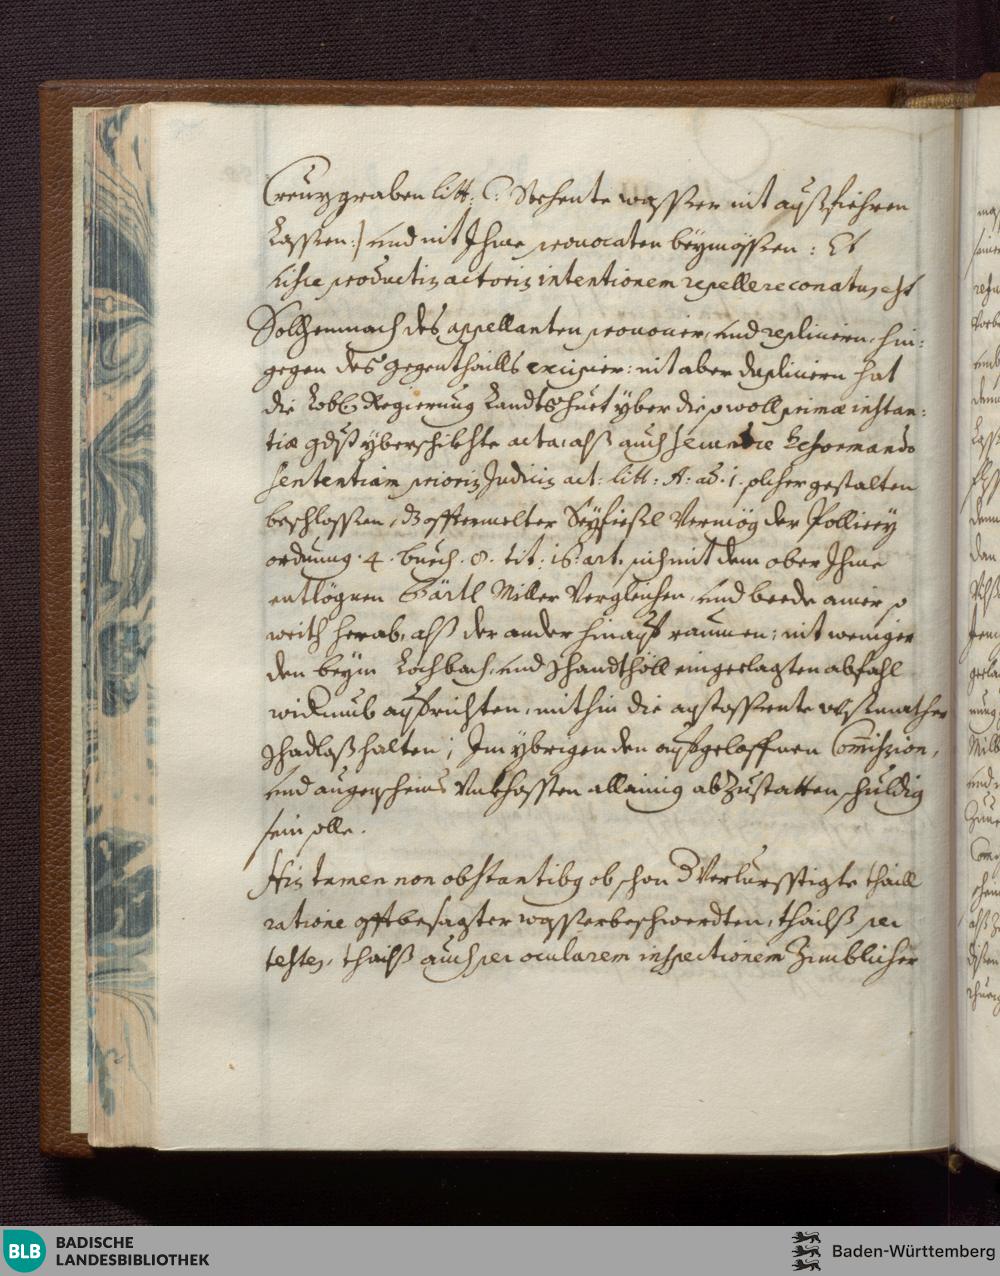 Creuzgraben litt: C: Stehente wasser nit außfiehren
Lassen:/ und nit Ihme provocaten beÿmössen: Et
hisce productis actoris intentionem repellere conatus est
Solchemnach des appellanten provocier, und replicirn, hin:
gegen des gegenthaills excipier: nit aber dupliciern hat
die Lobl: Regierung Landtshuet yber die sowoll primæ instan:
tiæ gdst yberschikhte acta, alß auch secundæ Reformando
Sententiam prioris Judicis act: litt: A: ad. 1. solcher gestalten
beschlossen, dz offtermelter Seÿfießl Vermög der Pollicey
ordnung. 4. buech. 8. tit: 16. art. sich mit dem ober Ihme
entlögnen Bärtl Miller Vergleichen, und beede ainer so
weith herab, alß der ander hinauf raumen; nit weniger
den beÿm Lochbach, und Schandthöll eingeclagten abfahl
widerumb aufrichten, mithin die anstossente wißmather
schadloßhalten; Im ybrigen den aufgeloffnen Commission,
und augenscheins Unkhossten allainig abzustatten schuldig
sein solle.
His tamen non obstantibus obschon dz Verlursstigte thaill
ratione offtbesagter wasserbeschwerdten, thailß per
testes, thailß auch per ocularem inspectionem Zimblicher
BLB
BADISCHE
LANDESBIBLIOTHEK
Baden-Württemberg